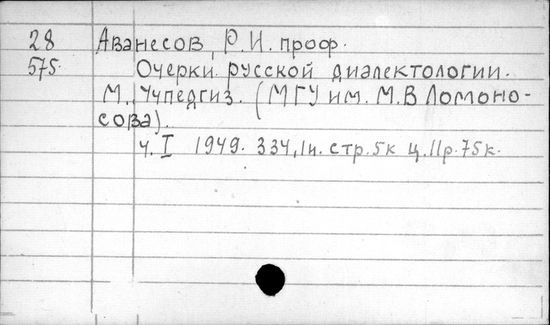 28 Аванесов, Р.И. проф.
575. Очерки русской диалектологии.
М., Учпедгиз. (МГУ им. М.В Ломоно-
сова).
ч. I 1949. 334, 1н. стр. 5к ц. 11р. 75к.